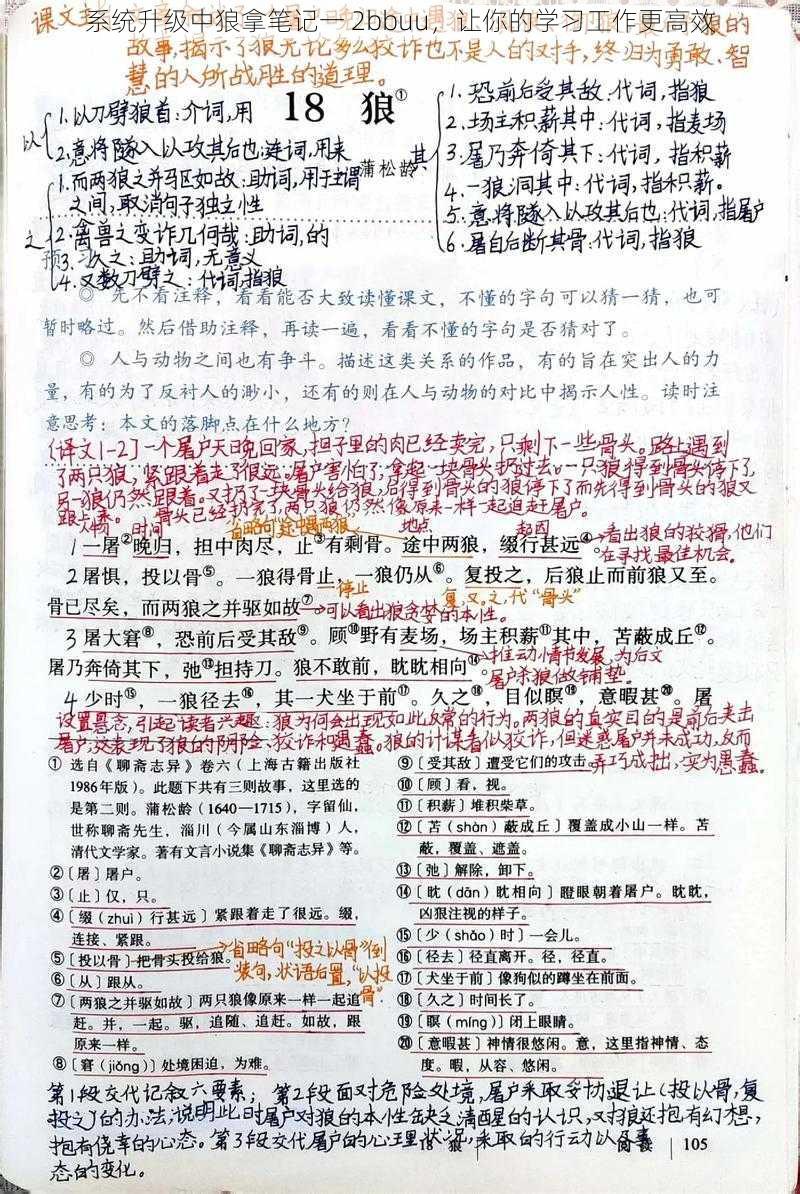 系统升级中狼拿笔记一 2bbuu，让你的学习工作更高效
故事，揭示了狼无论多么狡诈也不是人的对手，终归为勇敢、智
慧的人所战胜的道理。
18 狼①
蒲松龄
以
1.以刀劈狼首：介词，用
2.意将隧入以攻其后也：连词，用来
之
1.而两狼之并驱如故：助词，用于主谓
之间，取消句子独立性
2.禽兽之变诈几何哉：助词，的
3.久之：助词，无意义
4.又数刀劈之：代词，指狼
其
1.恐前后受其敌：代词，指狼
2.场主积薪其中：代词，指麦场
3.屠乃奔倚其下：代词，指积薪
4.一狼洞其中：代词，指积薪。
5.意将隧入以攻其后也：代词，指屠户
6.屠自后断其骨：代词，指狼
预习
◎ 先不看注释，看看能否大致读懂课文，不懂的字句可以猜一猜，也可
暂时略过。然后借助注释，再读一遍，看看不懂的字句是否猜对了。
◎ 人与动物之间也有争斗。描述这类关系的作品，有的旨在突出人的力
量，有的为了反衬人的渺小，还有的则在人与动物的对比中揭示人性。读时注
意思考：本文的落脚点在什么地方？
[译文1-2]一个屠户天晚回家，担子里的肉已经卖完，只剩下一些骨头。路上遇到
了两只狼，紧跟着走了很远。屠户害怕了，拿起一块骨头扔过去。一只狼得到骨头停下了，
另一狼仍然跟着。又扔了一块骨头给狼，后得到骨头的狼停下了而先得到骨头的狼又
跟上来。骨头已经扔完了，两只狼仍然像原来一样一起追赶屠户。
时间
省略句"途中遇两狼"
地点
起因
1 一屠②晚归，担中肉尽，止③有剩骨。途中两狼，缀行甚远④。
看出狼的狡猾，他们
在寻找最佳机会。
2 屠惧，投以骨⑤。一狼得骨止，一狼仍从⑥。复投之，后狼止而前狼又至。
停止
复，又。之，代"骨头"
骨已尽矣，而两狼之并驱如故⑦。
可以看出狼贪婪的本性。
3 屠大窘⑧，恐前后受其敌⑨。顾⑩野有麦场，场主积薪⑪其中，苫蔽成丘⑫。
屠乃奔倚其下，弛⑬担持刀。狼不敢前，眈眈相向⑭。
推动情节发展，为后文
屠户杀狼做铺垫。
4 少时⑮，一狼径去⑯，其一犬坐于前⑰。久之⑱，目似瞑⑲，意暇甚⑳。屠
设置悬念，引起读者兴趣：狼为何会出现如此反常的行为。两狼的真实目的是前后夹击
屠户，这表现了狼的阴险、狡诈和愚蠢。狼的计谋看似狡诈，但迷惑屠户并未成功，反而
弄巧成拙，实为愚蠢。
① 选自《聊斋志异》卷六（上海古籍出版社
1986年版）。此题下共有三则故事，这里选的
是第二则。蒲松龄（1640—1715），字留仙，
世称聊斋先生，淄川（今属山东淄博）人，
清代文学家。著有文言小说集《聊斋志异》等。
②〔屠〕屠户。
③〔止〕仅，只。
④〔缀（zhuì）行甚远〕紧跟着走了很远。缀，
连接、紧跟。
⑤〔投以骨〕把骨头投给狼。
省略句"投之以骨"倒
装句，状语后置，"以骨投"
⑥〔从〕跟从。
⑦〔两狼之并驱如故〕两只狼像原来一样一起追
赶。并，一起。驱，追随、追赶。如故，跟
原来一样。
⑧〔窘（jiǒng）〕处境困迫，为难。
⑨〔受其敌〕遭受它们的攻击。
⑩〔顾〕看，视。
⑪〔积薪〕堆积柴草。
⑫〔苫（shàn）蔽成丘〕覆盖成小山一样。苫
蔽，覆盖、遮盖。
⑬〔弛〕解除，卸下。
⑭〔眈（dān）眈相向〕瞪眼朝着屠户。眈眈，
凶狠注视的样子。
⑮〔少（shǎo）时〕一会儿。
⑯〔径去〕径直离开。径，径直。
⑰〔犬坐于前〕像狗似的蹲坐在前面。
⑱〔久之〕时间长了。
⑲〔瞑（míng）〕闭上眼睛。
⑳〔意暇甚〕神情很悠闲。意，这里指神情、态
度。暇，从容、悠闲。
第1段交代记叙六要素；第2段面对危险处境，屠户采取妥协退让（投以骨，复
投之）的办法，说明此时屠户对狼的本性缺乏清醒的认识，对狼还抱有幻想，
抱有侥幸的心态。第3段交代屠户的心理状况，采取的行动以及
态的变化。
18 狼 阅读 105